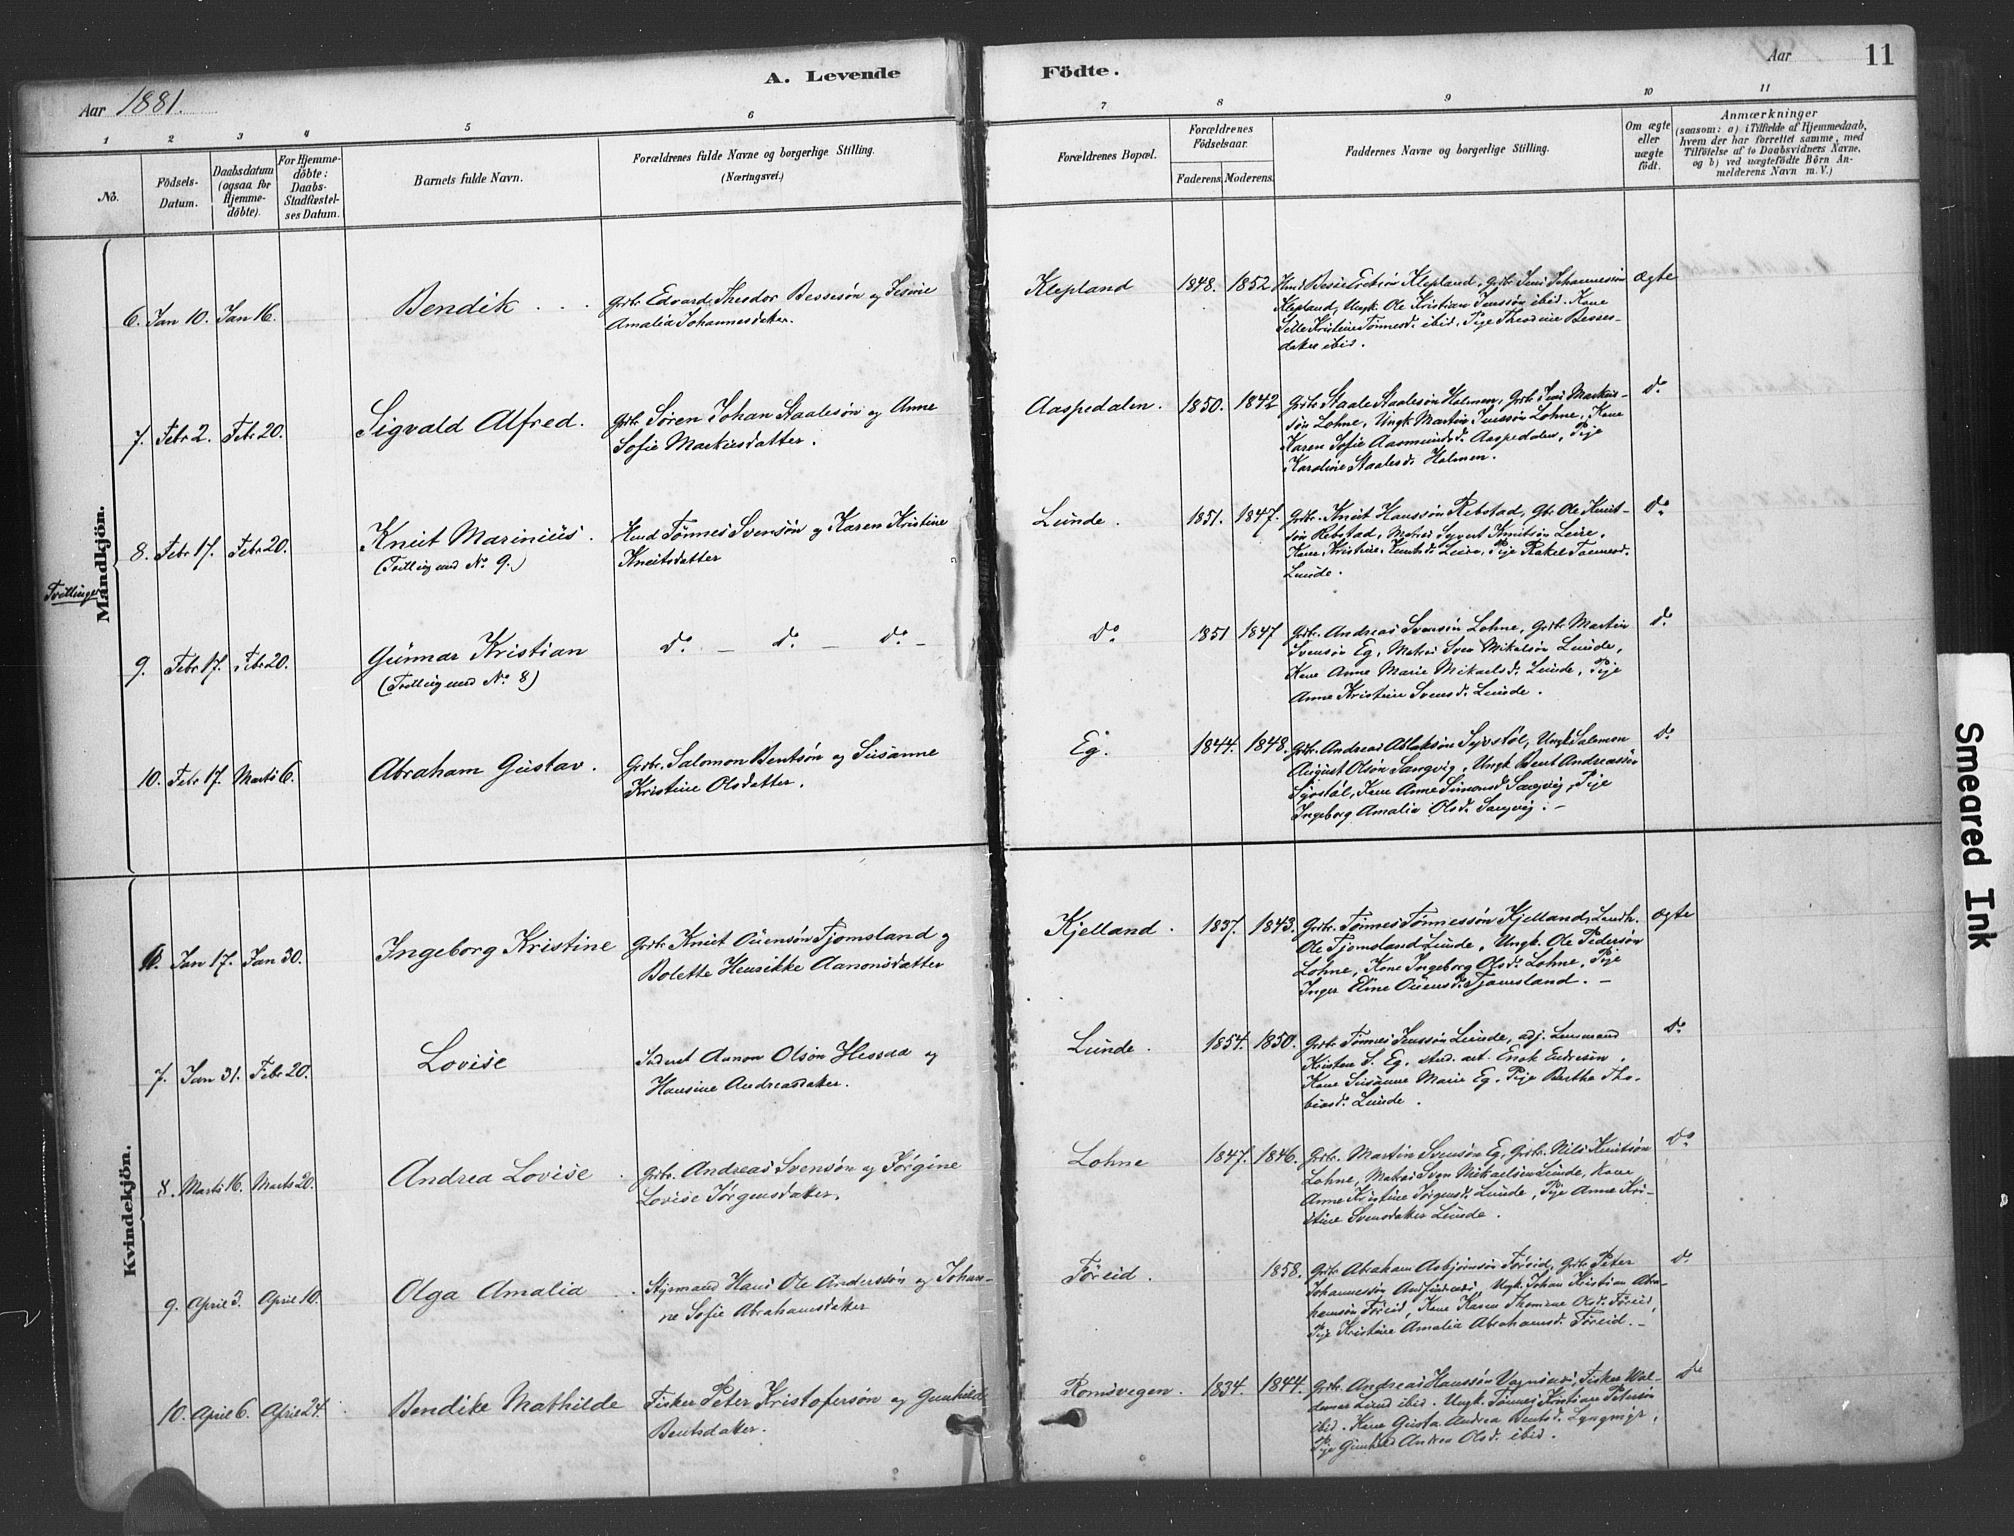 A. Levende Födte.
Aar 1881.
Aar
11
1 2 3 4 5 6 7 8 9 10 11
No.
Födsels-Datum.
Daabsdatum (ogsaa for Hjemme-döbte).
For Hjemme-döbte: Daabs-Stadfæstel-ses Datum.
Barnets fulde Navn.
Forældrenes fulde Navne og borgerlige Stilling.
(Næringsvei.)
Forældrenes Bopæl.
Forældrenes Födselsaar.
Faderens. Moderens.
Faddernes Navne og borgerlige Stilling.
Om ægte eller uægte födt.
Anmærkninger
(saasom: a) i Tilfælde af Hjemmedaab,
hvem der har forrettet samme, med
Tilföielse af to Daabsvidners Navne,
og b) ved uægtefödte Börn An-
melderens Navn m. V.)
Mandkjön.
6. Jan 10. Jan 16. Bendik Grbr. Edvard Theodor Bessesøn og
Amalia Johannesdatter.
Klepland 1848. 1852 Ægte
Klepland, Ungk. Ole Kristian Jenssøn ibid. Kone
Kristine Tønnesd. ibid, Pige Theodine Besses-
datter ibid.
7. Febr 2. Febr 20. Sigvald Alfred. Grbr. Søren Johan Staalesøn og Anne
Sofie Markusdatter.
Aaspedalen. 1850. 1842 Grbr. Staale Staalesøn Holmen, Grbr. Jens Markus- do
søn Lohne, Ungk. Martin Jenssøn Lohne, Kone
Karen Sofie Aasmundsd. Aaspedalen, Pige
Karoline Staalesd. Holmen.
Trillinger
8. Febr 17. Febr 20. Knut Marinius. Tønnes Svensøn og Karen Kristine
(Trilling med No. 9.) Knutsdatter
Lunde. 1851. 1847. Grbr. Knut Hanssøn Rebstad, Gbr. Ole Knut- do
søn Rebstad, Matros Syvert Knutsøn Leire,
Kone Kristine Knutsd. Leire, Pige Rakel Tønnesd.
Lunde.
9. Febr 17. Febr 20. Gunnar Kristian do - do - do -
(Trilling med No. 8)
do 1851 1847 Grbr. Andreas Svensøn Lohne, Grbr. Martin do
Svensøn Eg, Matros Sven Mikalsøn Lunde,
Kone Anne Marie Mikaelsd. Lunde, Pige
Anne Kristine Svensd. Lunde.
10. Febr 17. Marts 6. Abraham Gustav. Grbr. Salomon Bentsøn og Susanne
Kristine Olsdatter.
Eg. 1844. 1848. Grbr. Andreas Atlaksøn Syrstøl, Ungk. Salomon do
August Olsøn Sangvig, Ungk. Bent Andreassøn
Syrstøl, Kone Anne Simonsd. Sangvig, Pige
Ingeborg Amalia Olsd. Sangvig. -
Kvindekjön.
6. Jan 17. Jan 30. Ingeborg Kristine Grbr. Knut Ouensøn Tjomsland og
Bolette Henrikke Aanonsdatter
Kjelland. 1837. 1843. Grbr. Tønnes Tønnessøn Kjelland, Ægte
Ole Tjomsland Lunde, Ungk. Ole Pedersøn
Lohne, Kone Ingeborg Olsd. Lohne, Pige
Inger Eline Ouensd. Tjomsland. -
7. Jan 31. Febr 20. Lovise Aanon Olsøn Hessaa og
Hansine Andreasdatter.
Lunde. 1854. 1850. Grbr. Tønnes Jenssøn Lunde, adj. Lensmand do
Kristen S. Eg, stud. art. Enok Endresøn,
Kone Susanne Marie Eg, Pige Berthe Tho-
biasd. Lunde.
8. Marts 16. Marts 20. Andrea Lovise. Grbr. Andreas Svensøn og Jørgine
Lovise Jørgensdatter.
Lohne 1847. 1846. Grbr. Martin Svensøn Eg, Grbr. Nils Knutsøn do
Lohne, Matros Sven Mikaelsøn Lunde, Kone
Anne Kristine Jørgensd. Lunde, Pige Anne Kri-
stine Svensdatter Lunde.
9. April 3. April 10. Olga Amalia. Styrmand Hans Ole Anderssøn og Johan-
ne Sofie Abrahamsdatter
Føreid. 1858. Grbr. Abraham Asbjørnsøn Føreid, Grbr. Peter do
Johannessøn Ungk. Johan Kristian Abra-
hamsøn Føreid, Kone Karen Thomine Olsd. Føreid,
Pige Kristine Amalia Abrahamsd. Føreid. -
10. April 6. April 24. Bendike Mathilde Fisker Peter Kristofersøn og Gunhild
Bentsdatter.
Romsvegen. 1834. 1844. Grbr. Andreas Hanssøn Fisker Wal- do
demar Lund ibid. Ungk. Tønnes Kristian Petersøn
ibid. Kone Gusta Andrea Bentsd.
Pige Gunhild Andrea Olsd. ibid.
Smeared Ink